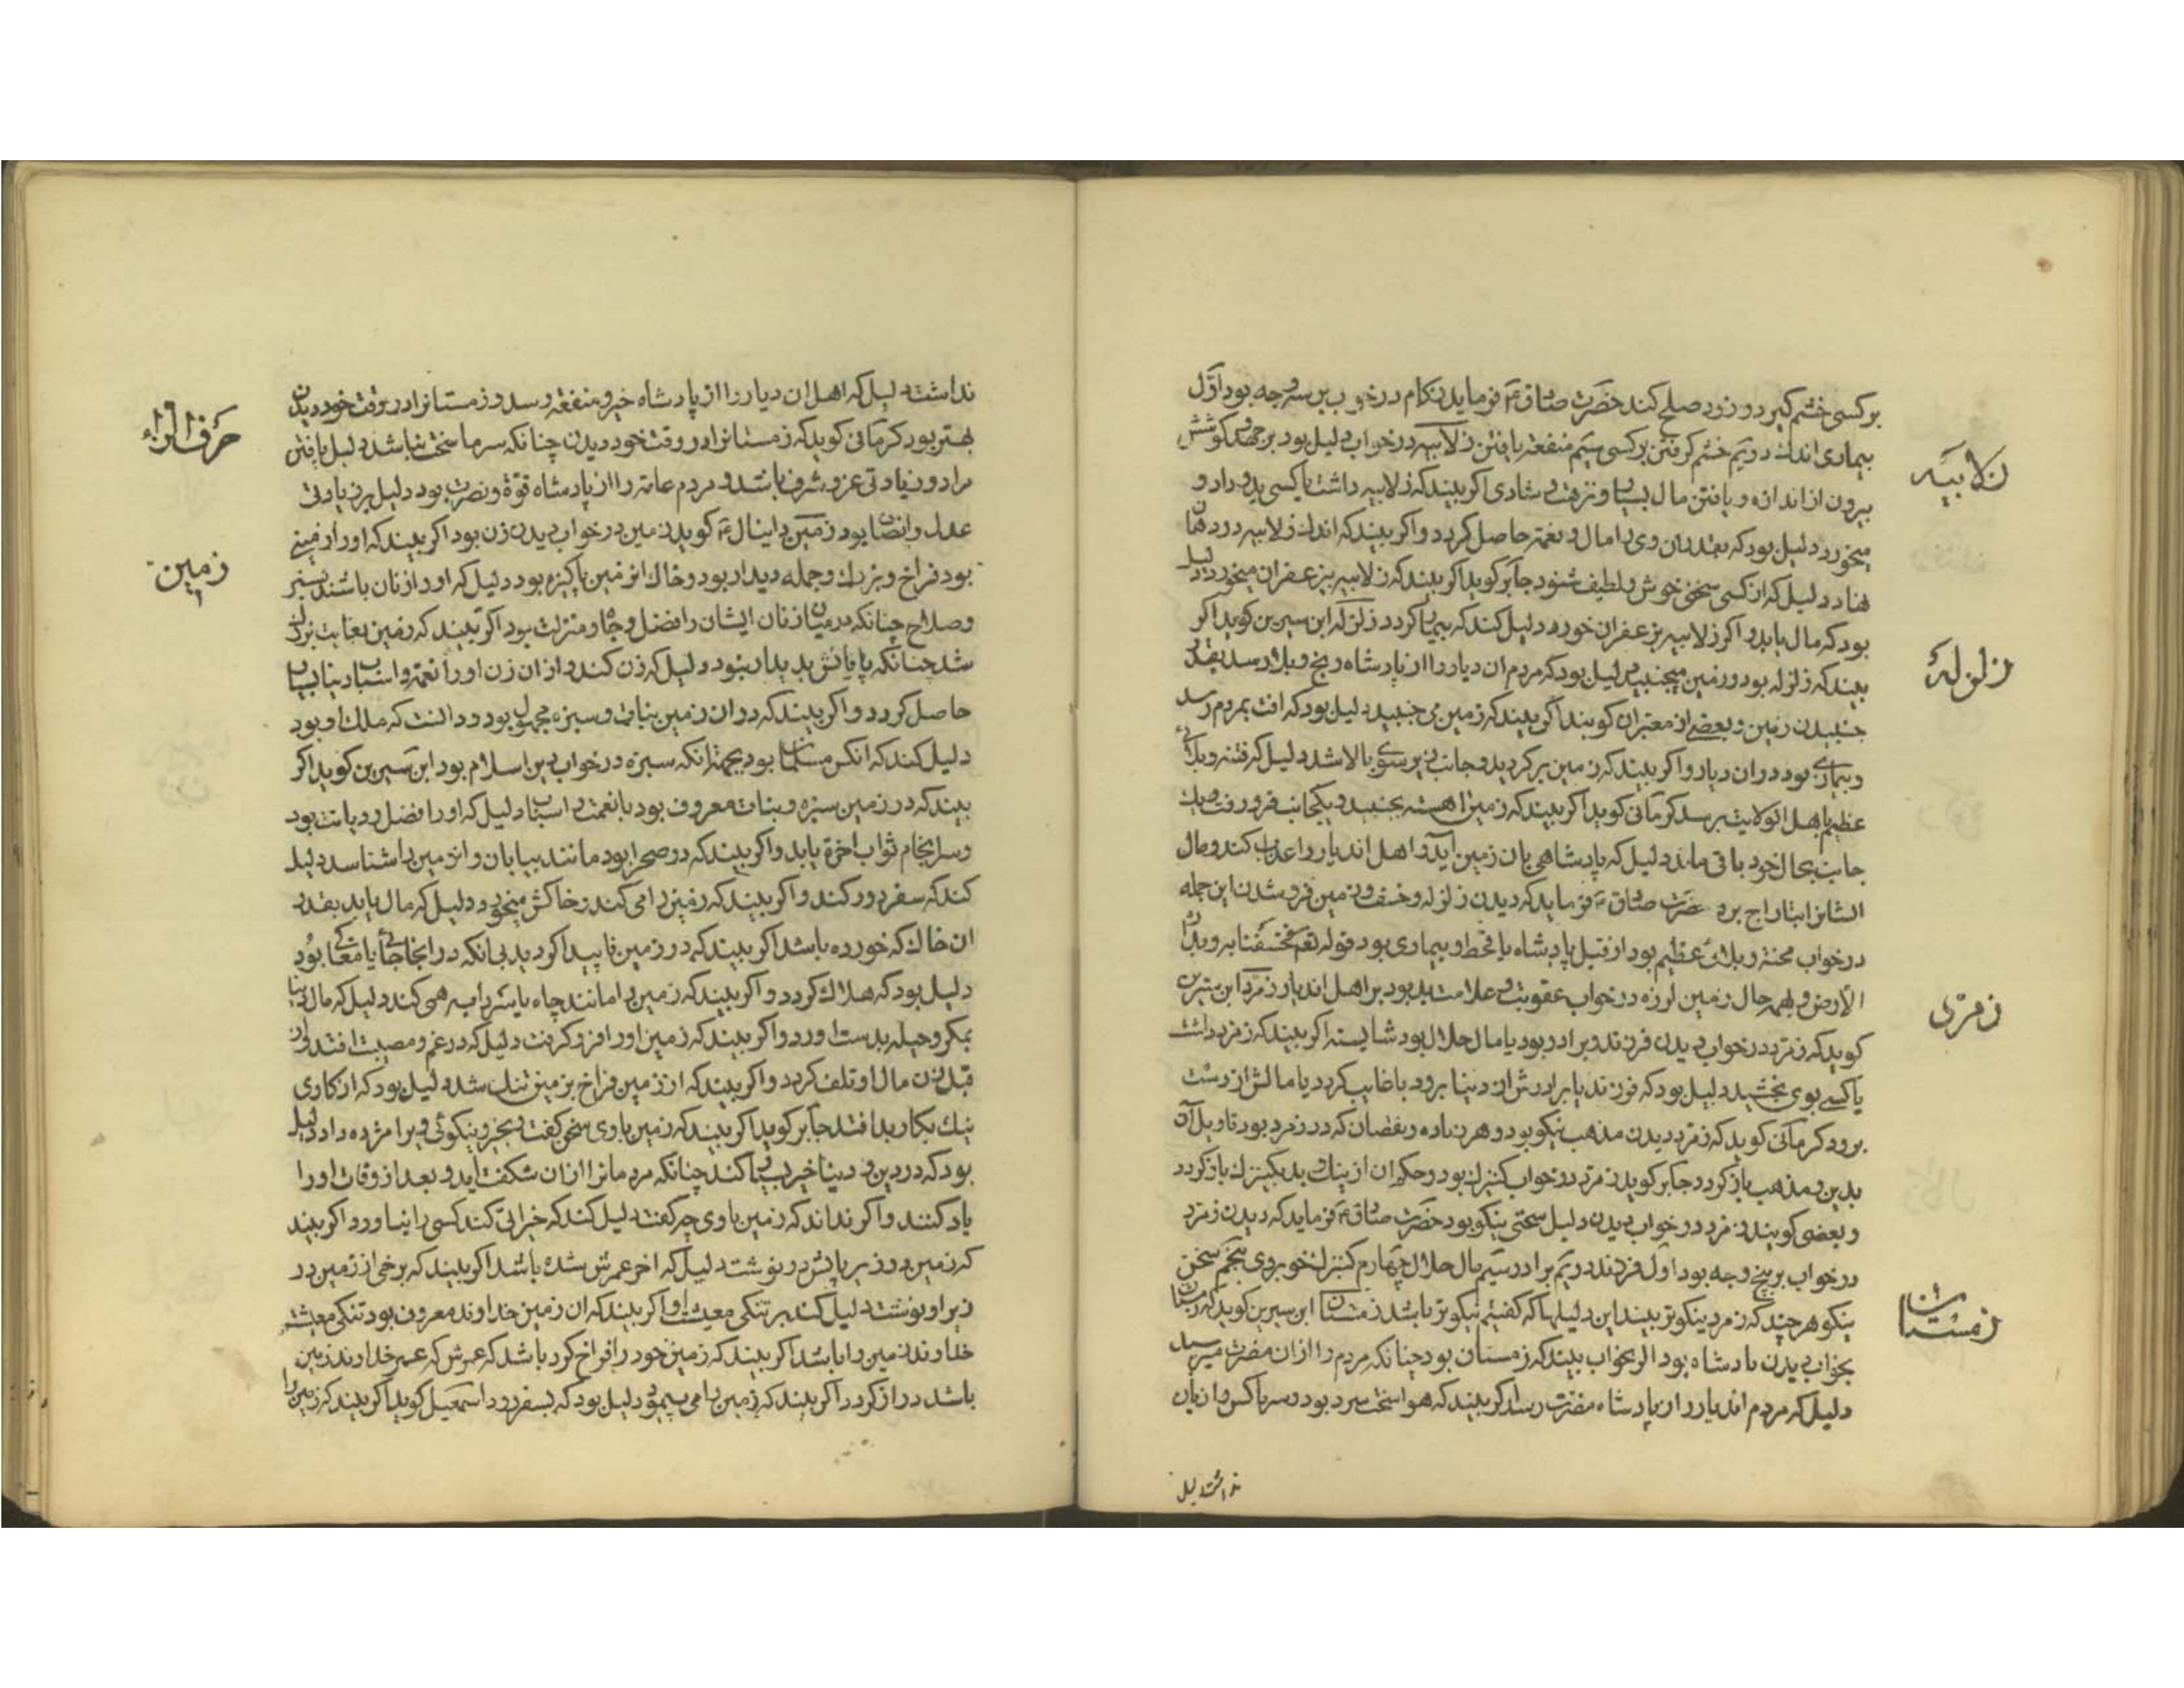 بر کسی خشم گیرد و زود صلح کند حضرت صادق ع فرماید زکام در خواب بر سه وجه بود اول
بیماری اندک دویم خشم گرفتن بر کسی سیم منفعة یافتن زلابیه در خواب دلیل بود بر جهد و کوشش
بیرون از اندازه و یافتن مال بسیار و نزهت و شادی اگر بیند که زلابیه داشت یا کسی بدو داد و
میخورد دلیل بود که بقدر ان وی را مال و نعمة حاصل گردد و اگر بیند که اندک زلابیه در دهان
نهاد دلیل که از کسی سخنی خوش و لطیف شنود جابر گوید اگر بیند که زلابیه بزعفران میخورد دلیل
بود که مال یابد و اگر زلابیه بزعفران خورد دلیل کند که بیمار گردد زلزله ابن سیرین گوید اگر
بیند که زلزله بود و زمین میجنبید دلیل بود که مردم ان دیار را از پادشاه رنج و بلا رسد بقدر
جنبیدن زمین و بعضی از معبران گویند اگر بیند که زمین می جنبید دلیل بود که افت بمردم رسد
و بیماری بود در ان دیار و اگر بیند که زمین بر گردید و جانب زیر سوی بالا شد دلیل که فتنه و بلائی
عظیم باهل انولایت برسد کرمانی گوید اگر بیند که زمین اهسته بجنبید و یکجانب فرو رفت و یک
جانب بحال خود باقی ماند دلیل که پادشاهی بان زمین آید و اهل اندیار را عذاب کند و مال
ایشانرا بتاراج برد حضرت صادق ع فرماید که دیدن زلزله و خسف و زمین فرو شدن این جمله
در خواب محنة و بلای عظیم بود از قبل پادشاه یا قحط و بیماری بود قوله تعم فخسفنا به و بداره
الارض و بهر حال زمین لرزه در خواب عقوبت و علامت بد بود بر اهل اندیار زمرد ابن سیرین
گوید که زمرد در خواب دیدن فرزند و برادر بود یا مال حلال بود شایسته اگر بیند که زمرد داشت
یا کسی بوی بخشید دلیل بود که فرزند یا برادرش از دنیا برود یا غایب گردد یا مالش از دست
برود کرمانی گوید که زمرد دیدن مذهب نیکو بود و هر زیاده و نقصان که در زمرد بود تاویل آن
بدین و مذهب باز گردد جابر گوید زمرد در خواب کنیزک بود و حکم ان از نیک و بد بکنیزک باز گردد
و بعضی گویند زمرد در خواب دیدن دلیل سختی نیکو بود حضرت صادق ع فرماید که دیدن زمرد
در خواب بر پنج وجه بود اول فرزند دویم برادر سیم مال حلال چهارم کنیزک خوبروی پنجم سخن
نیکو هر چند که زمرد نیکوتر بیند این دلیلها که گفتیم نیکوتر باشد زمستان ابن سیرین گوید که زمستان
بخواب دیدن پادشاه بود اگر بخواب بیند که زمستان بود چنانکه مردم را از ان مضرت میرسد
دلیل که مردم اندیار را از پادشاه مضرت رسد اگر بیند که هوا سخت سرد بود و سرما کس را زیان
نداشت دلیل
زلابیه
زلزله
زمرد
زمستان
نداشت دلیل که اهل ان دیار را از پادشاه خیر و منفعة رسد و زمستانرا در وقت خود دیدن
بهتر بود کرمانی گوید که زمستانرا در وقت خود دیدن چنانکه سرما سخت نباشد دلیل یافتن
مراد و زیادتی عز و شرف باشد و مردم عامه را از پادشاه قوة و نصرت بود دلیل بر زیادتی
عدل و انصاف بود زمین دانیال ع گوید زمین در خواب دیدن زن بود اگر بیند که او را زمینی
بود فراخ و بزرک و جمله دیدار بود و خاک ان زمین پاکیزه بود دلیل که او را زنان باشند بستر
و صلاح چنانکه در میان زنان ایشان را فضل و جاه و منزلت بود اگر بیند که زمین بغایت بزرک
شد چنانکه پایانش پدیدار نبود دلیل که زن کند و از ان زن او را نعمة و اسباب دنیا بسیار
حاصل گردد و اگر بیند که در ان زمین بنات و سبزه مجهول بود و دانست که ملک او بود
دلیل کند که انکس مسلمان بود بجهة انکه سبزه در خواب دین اسلام بود ابن سیرین گوید اگر
بیند که در زمین سبزه و بنات معروف بود با نعمت و اسباب دلیل که او را فضل و دیانت بود
و سرانجام ثواب اخرة یابد و اگر بیند که در صحرا بود مانند بیابان و ان زمین را شناسد دلیل
کند که سفر دور کند و اگر بیند که زمین را می کند و خاکش میخورد دلیل که مال یابد بقدر
ان خاک که خورده باشد اگر بیند که در زمین ناپیدا گردید بی انکه در انجا جائی یا مغاکی بود
دلیل بود که هلاک گردد و اگر بیند که زمین را مانند چاه یا سردابه همی کند دلیل که مال دنیا
بمکر و حیله بدست اورد و اگر بیند که زمین او را فرو گرفت دلیل که در غم و مصیبت افتد از
قبل زن مال او تلف گردد و اگر بیند که از زمین فراخ بزمین تنک شد دلیل بود که از کاری
نیک بکار بد افتد جابر گوید اگر بیند که زمین با وی سخن گفت و بخیر و نیکوئی ویرا مژده داد دلیل
بود که در دین و دنیا خیر بسیار کند چنانکه مردمانرا از ان شگفت اید و بعد از وفات او را
یاد کنند و اگر نداند که زمین با وی چه گفت دلیل کند که خیراتی کند کسی را بنیاورد اگر بیند
که زمین در زیر پایش در نوشت دلیل که اخر عمرش شده باشد اگر بیند که برخی از زمین در
زیر او نوشت دلیل کند بر تنکی معیشت او اگر بیند که ان زمین خداوند معروف بود تنکی معیشت
خداوند زمین را باشد اگر بیند که زمین خود را فراخ کرد باشد که عمرش که عمر خداوند زمین
باشد دراز گردد اگر بیند که زمین را می پیمود دلیل بود که بسفر رود اسمعیل گوید اگر بیند که زمین را
حرف الزاء
زمین